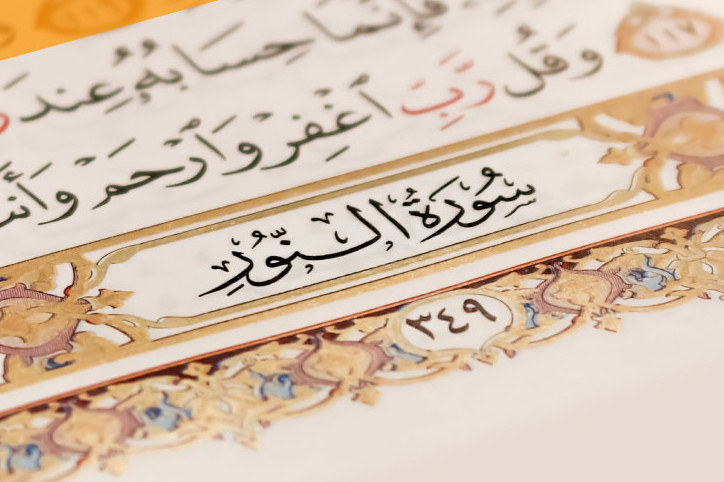 فَإِنَّمَا حِسَابُهُۥ عِندَ
١١٧
وَقُل رَّبِّ ٱغْفِرْ وَٱرْحَمْ وَأَنتَ
سُورَةُ النُّورِ
٣٤٩